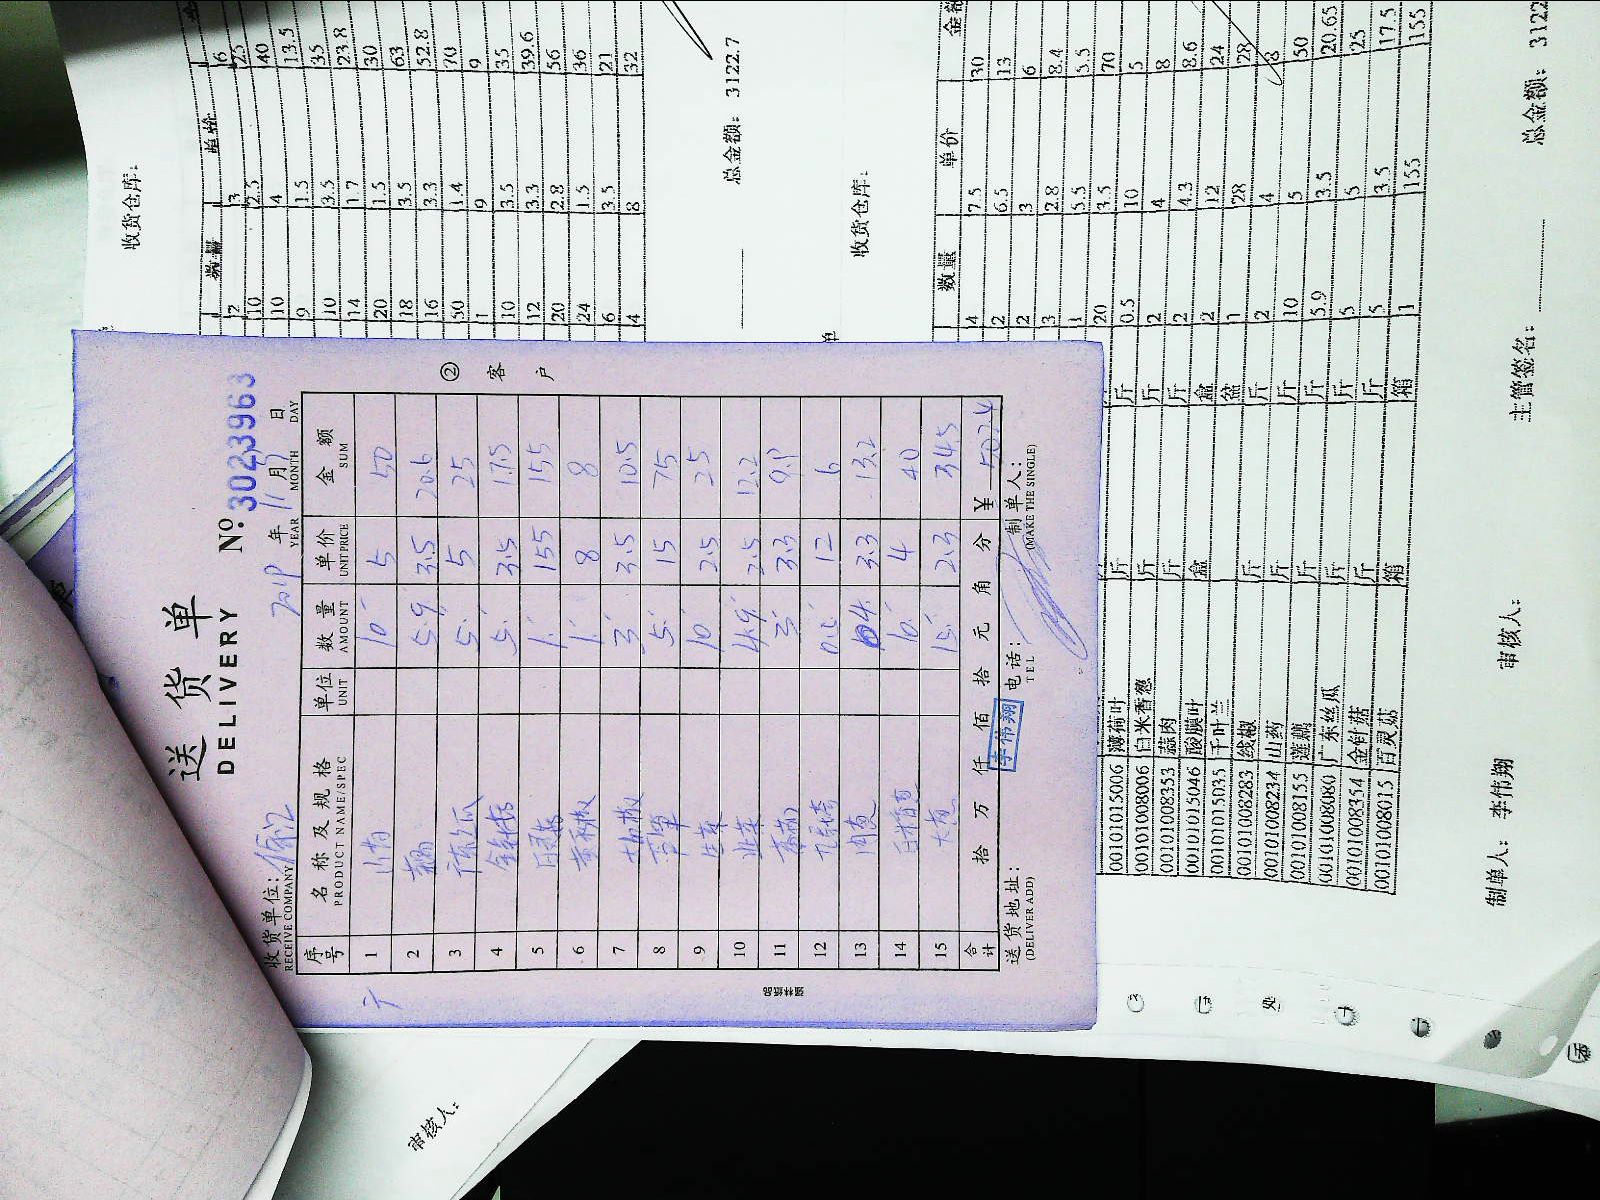 送货单
DELIVERY
№ 3023963
收货单位:
RECEIVE COMPANY
2019 年 11 月 7 日
YEAR MONTH DAY
序号 名称及规格 单位 数量 单价 金额
PRODUCT NAME/SPEC UNIT AMOUNT UNIT PRICE SUM
1 山药 10 5 50
2 莲藕 5.9 3.5 20.6
3 广东丝瓜 5 5 25
4 金针菇 5 3.5 17.5
5 百灵菇 1 155 155
6 1 8 8
7 3 3.5 10.5
8 5 15 75
9 生菜 10 2.5 25
10 韭菜 4.9 2.5 12.2
11 3 3.3 9.9
12 0.5 12 6
13 4 3.3 13.2
14 10 4 40
15 大葱 15 2.3 34.5
合计 拾 万 仟 佰 拾 元 角 分 ¥ 502.4
李伟翔
送货地址:
(DELIVER ADD)
电话:
TEL
制单人:
(MAKE THE SINGLE)
② 客户
收货仓库:
数量 单价
6
2 3 25
10 2.5 40
10 4 13.5
9 1.5 35
10 3.5 23.8
14 1.7 30
20 1.5 63
18 3.5 52.8
16 3.3 70
50 1.4 9
1 9 35
10 3.5 39.6
12 3.3 56
20 2.8 36
24 1.5 21
6 3.5 32
4 8
总金额: 3122.7
单
收货仓库:
数量 单价 金额
4 7.5 30
2 6.5 13
2 3 6
3 2.8 8.4
1 5.5 5.5
20 3.5 70
00101015006 薄荷叶 斤 斤 0.5 10 5
00101008006 白米香葱 斤 斤 2 4 8
00101008353 蒜肉 斤 斤 2 4.3 8.6
00101015046 酸膜叶 盒 盒 2 12 24
00101015035 千叶兰 盆 1 28 28
00101008283 线椒 斤 斤 2 4 8
00101008234 山药 斤 斤 10 5 50
00101008155 莲藕 斤 斤 5.9 3.5 20.65
00101008080 广东丝瓜 斤 斤 5 5 25
00101008354 金针菇 斤 斤 5 3.5 17.5
00101008015 百灵菇 箱 箱 1 155 155
制单人: 李伟翔 审核人: 主管签名: 总金额: 3122
审核人: